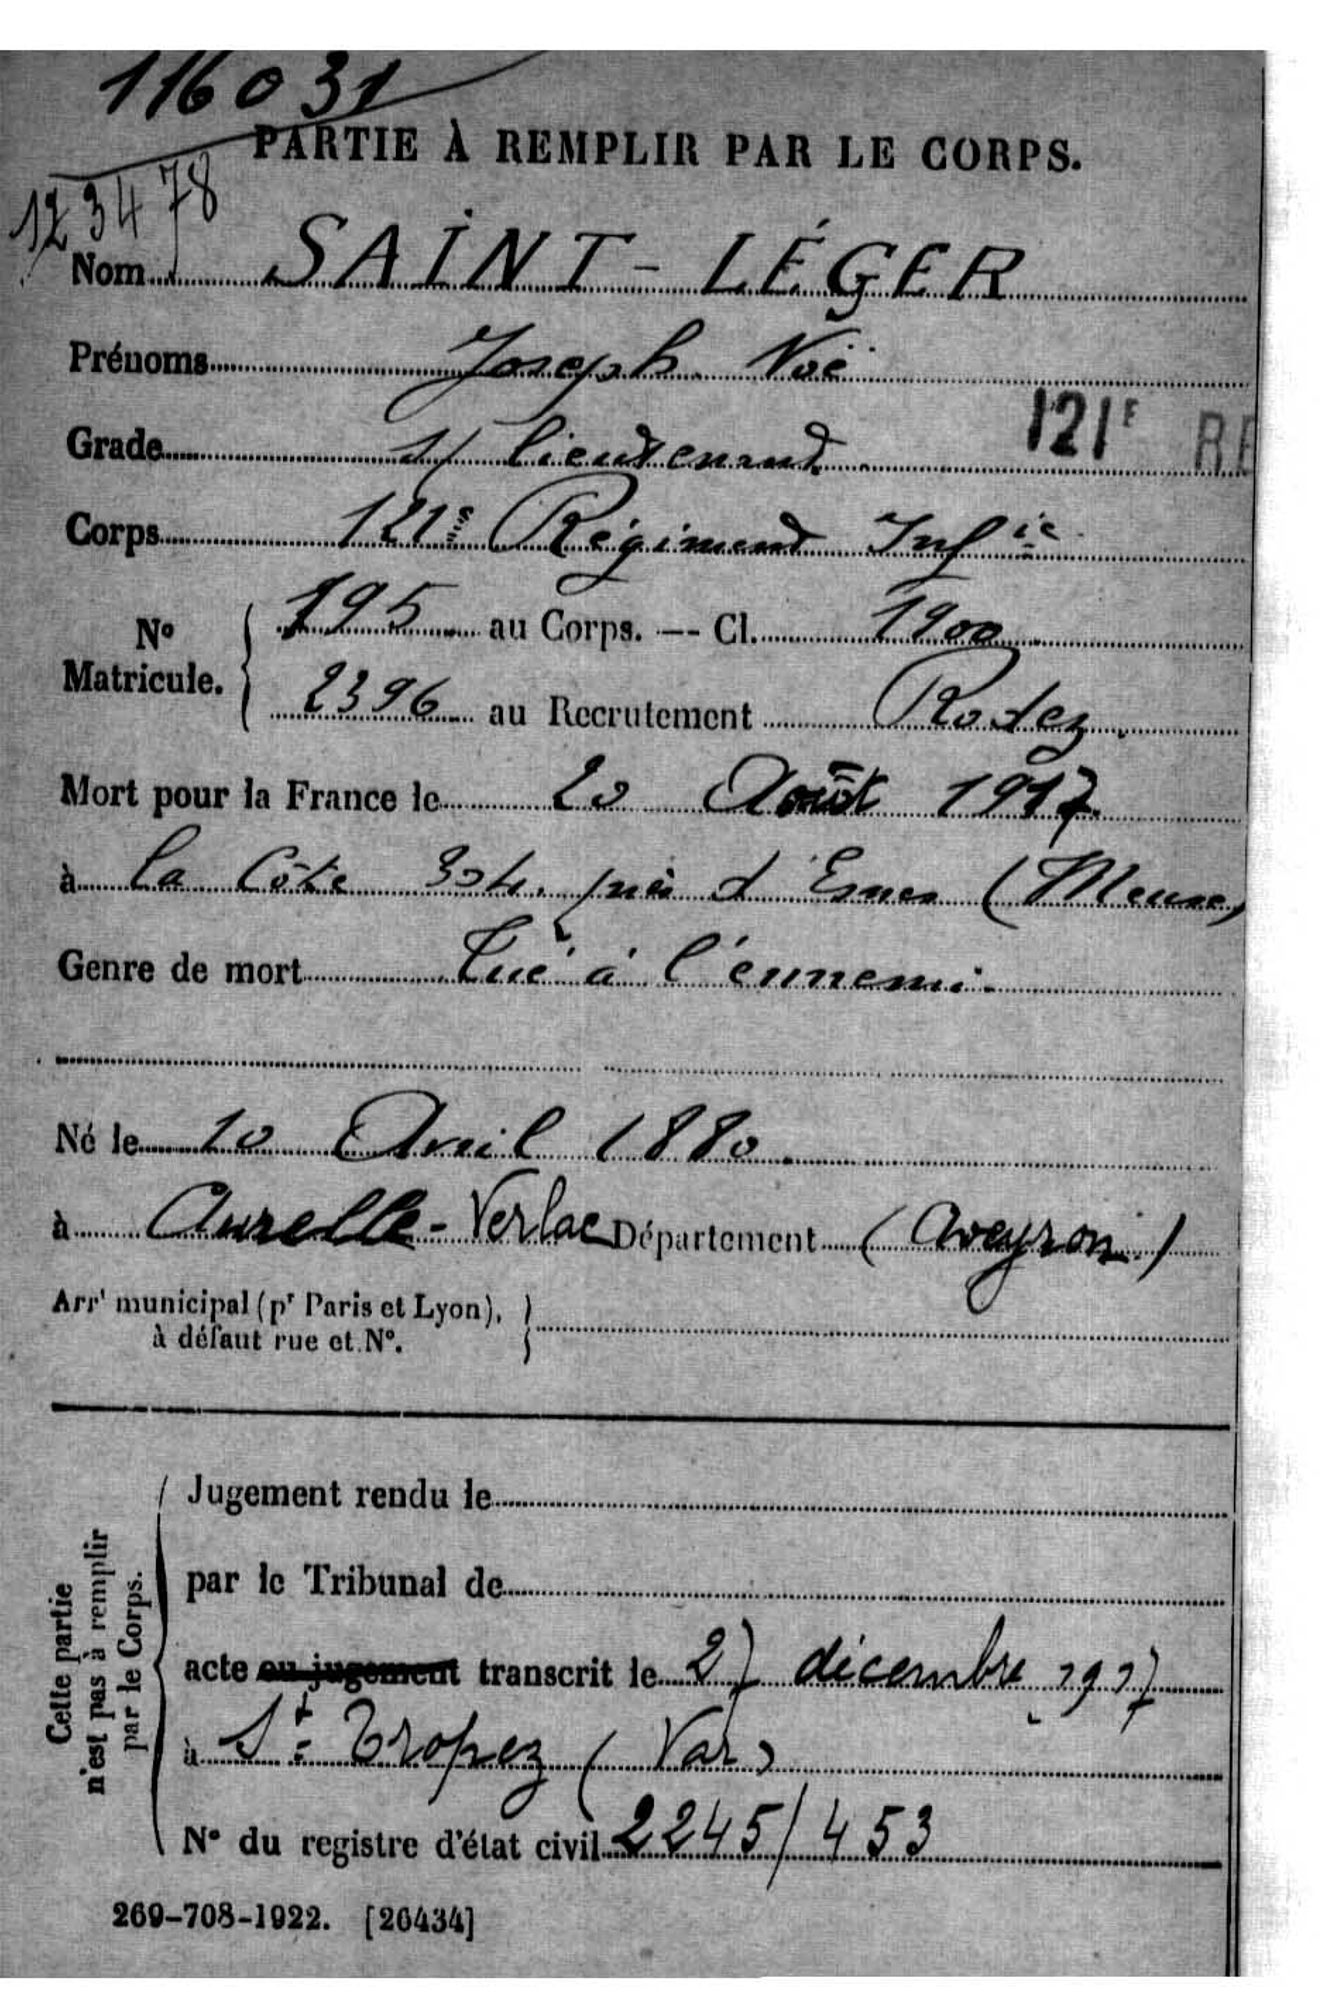 116031
PARTIE À REMPLIR PAR LE CORPS.
123478
Nom SAINT-LÉGER
Prénoms Joseph Noë
121E RE
Grade S/ lieutenant
Corps 121e Régiment Infie
No Matricule. { 195 au Corps. — Cl. 1900
2396 au Recrutement Rodez.
Mort pour la France le 20 Août 1917
à la Côte 304, près d'Esnes (Meuse)
Genre de mort Tué à l'ennemi.
Né le 10 Avril 1880.
à Aurelle-Verlac Département (Aveyron)
Arrt municipal (pr Paris et Lyon),
à défaut rue et No.
Cette partie
n'est pas à remplir
par le Corps.
Jugement rendu le
par le Tribunal de
acte ou jugement transcrit le 27 décembre 1917
à St Tropez (Var)
No du registre d'état civil 2245/453
269-708-1922. [26434]